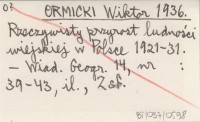 02 ORMICKI Wiktor 1936.
Rzeczywisty przyrost ludności
wiejskiej w Polsce 1921-31.
- Wiad. Geogr. 14, nr :
39-43, il., Zsf.
BI/037/0598